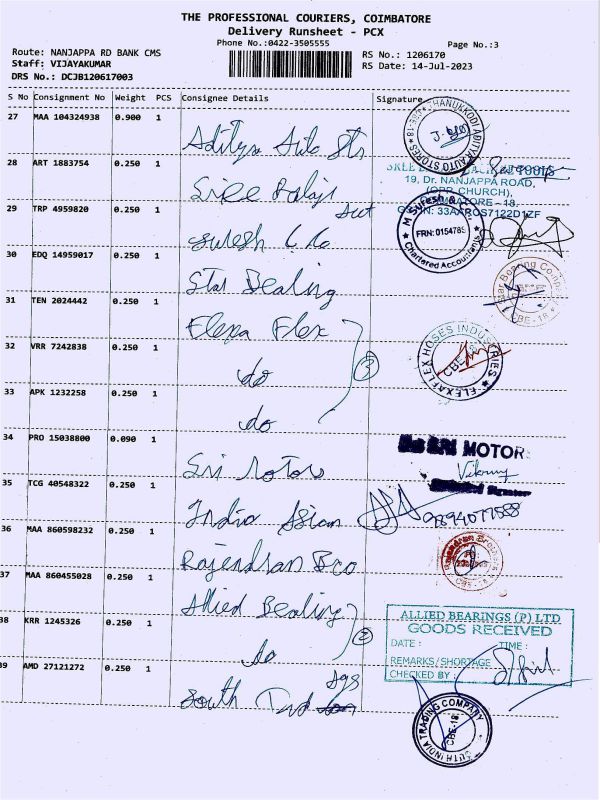 THE PROFESSIONAL COURIERS, COIMBATORE
Delivery Runsheet - PCX
Phone No.:0422-3505555
Page No.:3
Route: NANJAPPA RD BANK CMS
RS No.: 1206170
Staff: VIJAYAKUMAR
RS Date: 14-Jul-2023
DRS No.: DCJB120617003
S No Consignment No Weight PCS Consignee Details Signature
27 MAA 104324938 0.900 1
Aditya Auto Sts
AUTO STORES
28 ART 1883754 0.250 1
Sree Balaji
19, Dr. NANJAPPA ROAD,
(OPP. CHURCH),
29 TRP 4959820 0.250 1
Suresh & Co
M Suresh &
FRN: 015478S
Chartered Accountants
30 EDQ 14959017 0.250 1
Star Bearing
Star Bearing Company
CBE-18
31 TEN 2024442 0.250 1
Flexa Flex
FLEXAFLEX HOSES INDUSTRIES
CBE-18
32 VRR 7242838 0.250 1
do
3
33 APK 1232258 0.250 1
do
34 PRO 15038800 0.090 1
Sri Motors
SRI MOTOR
35 TCG 40548322 0.250 1
India Asian
36 MAA 860598232 0.250 1
Rajendran Bro
Rajendran Brothers
37 MAA 860455028 0.250 1
Allied Bearing
38 KRR 1245326 0.250 1
do
2
ALLIED BEARINGS (P) LTD
GOODS RECEIVED
DATE : TIME :
REMARKS/SHORTAGE
CHECKED BY :
39 AMD 27121272 0.250 1
South Ind
SOUTH INDIA TRADING COMPANY
CBE-18